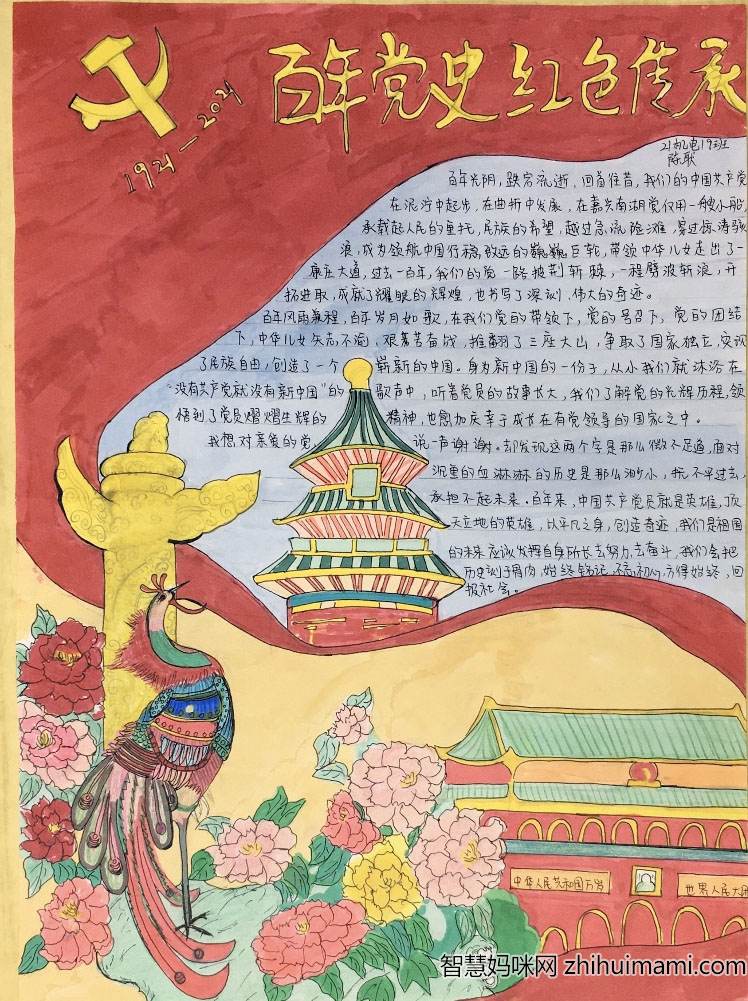 百年党史红色传承
1921—2021
21机电19班
陈歌
百年光阴,跌宕流逝,回首往昔,我们的中国共产党
在泥泞中起步,在曲折中发展,在嘉兴南湖党仅用一艘小船,
承载起人民的重托,民族的希望,越过急流险滩,穿过惊涛骇
浪,成为领航中国行稳致远的巍巍巨轮,带领中华儿女走出了一
康庄大道,过去一百年,我们的党一路披荆斩棘,一程劈波斩浪,开
拓进取,成就了耀眼的辉煌,也书写了深刻、伟大的奇迹。
百年风雨兼程,百年岁月如歌,在我们党的带领下,党的号召下,党的团结
下,中华儿女矢志不渝,艰苦奋战,推翻了三座大山,争取了国家独立,实现
了民族自由,创造了一个崭新的中国。身为新中国的一份子,从小我们就沐浴在
"没有共产党就没有新中国"的歌声中,听着党员的故事长大,我们了解党的光辉历程,领
悟到了党员熠熠生辉的精神,也愈加庆幸于成长在有党领导的国家之中。
我想对亲爱的党,说一声谢谢。却发现这两个字是那么微不足道,面对
沉重的血淋淋的历史是那么渺小,抗不平过去,
承担不起未来。百年来,中国共产党员就是英雄,顶
天立地的英雄,以平凡之身,创造奇迹,我们是祖国
的未来应该发挥自身所长去努力,去奋斗,我们会把
历史刻于骨肉,始终铭记,不忘初心,方得始终,回
报社会。
中华人民共和国万岁
世界人民大团
智慧妈咪网 zhihuimami.com